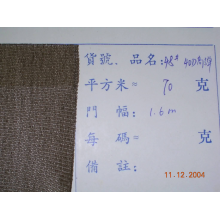 貨號、品名:48#
平方米= 70 克
門 幅: 1.6m
每 碼= 克
備 註:
11.12.2004